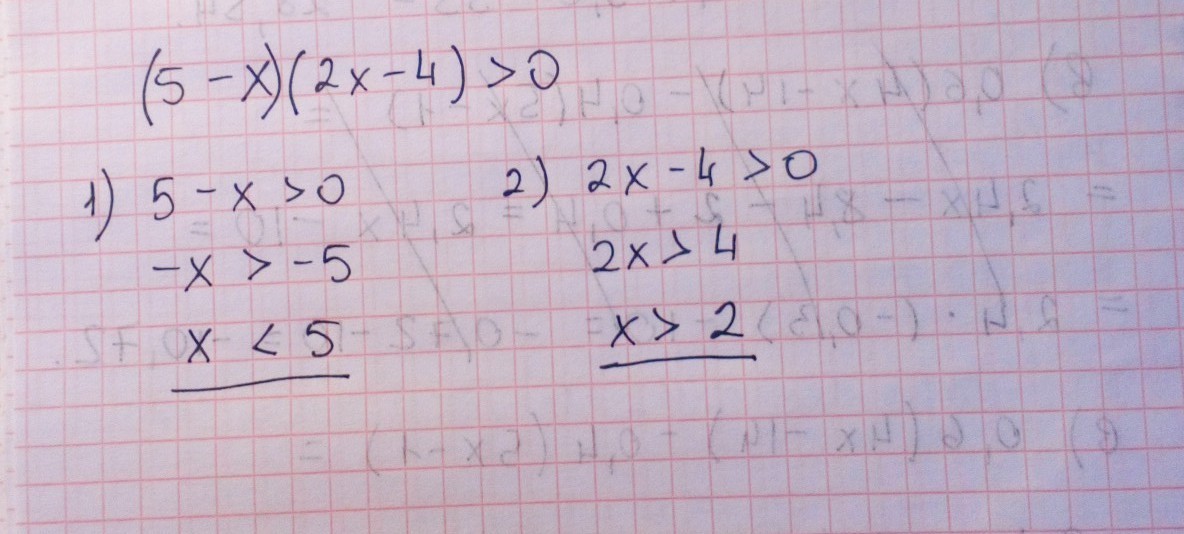 (5-x)(2x-4)>0
1) 5-x>0 2) 2x-4>0
-x>-5 2x>4
x<5 x>2